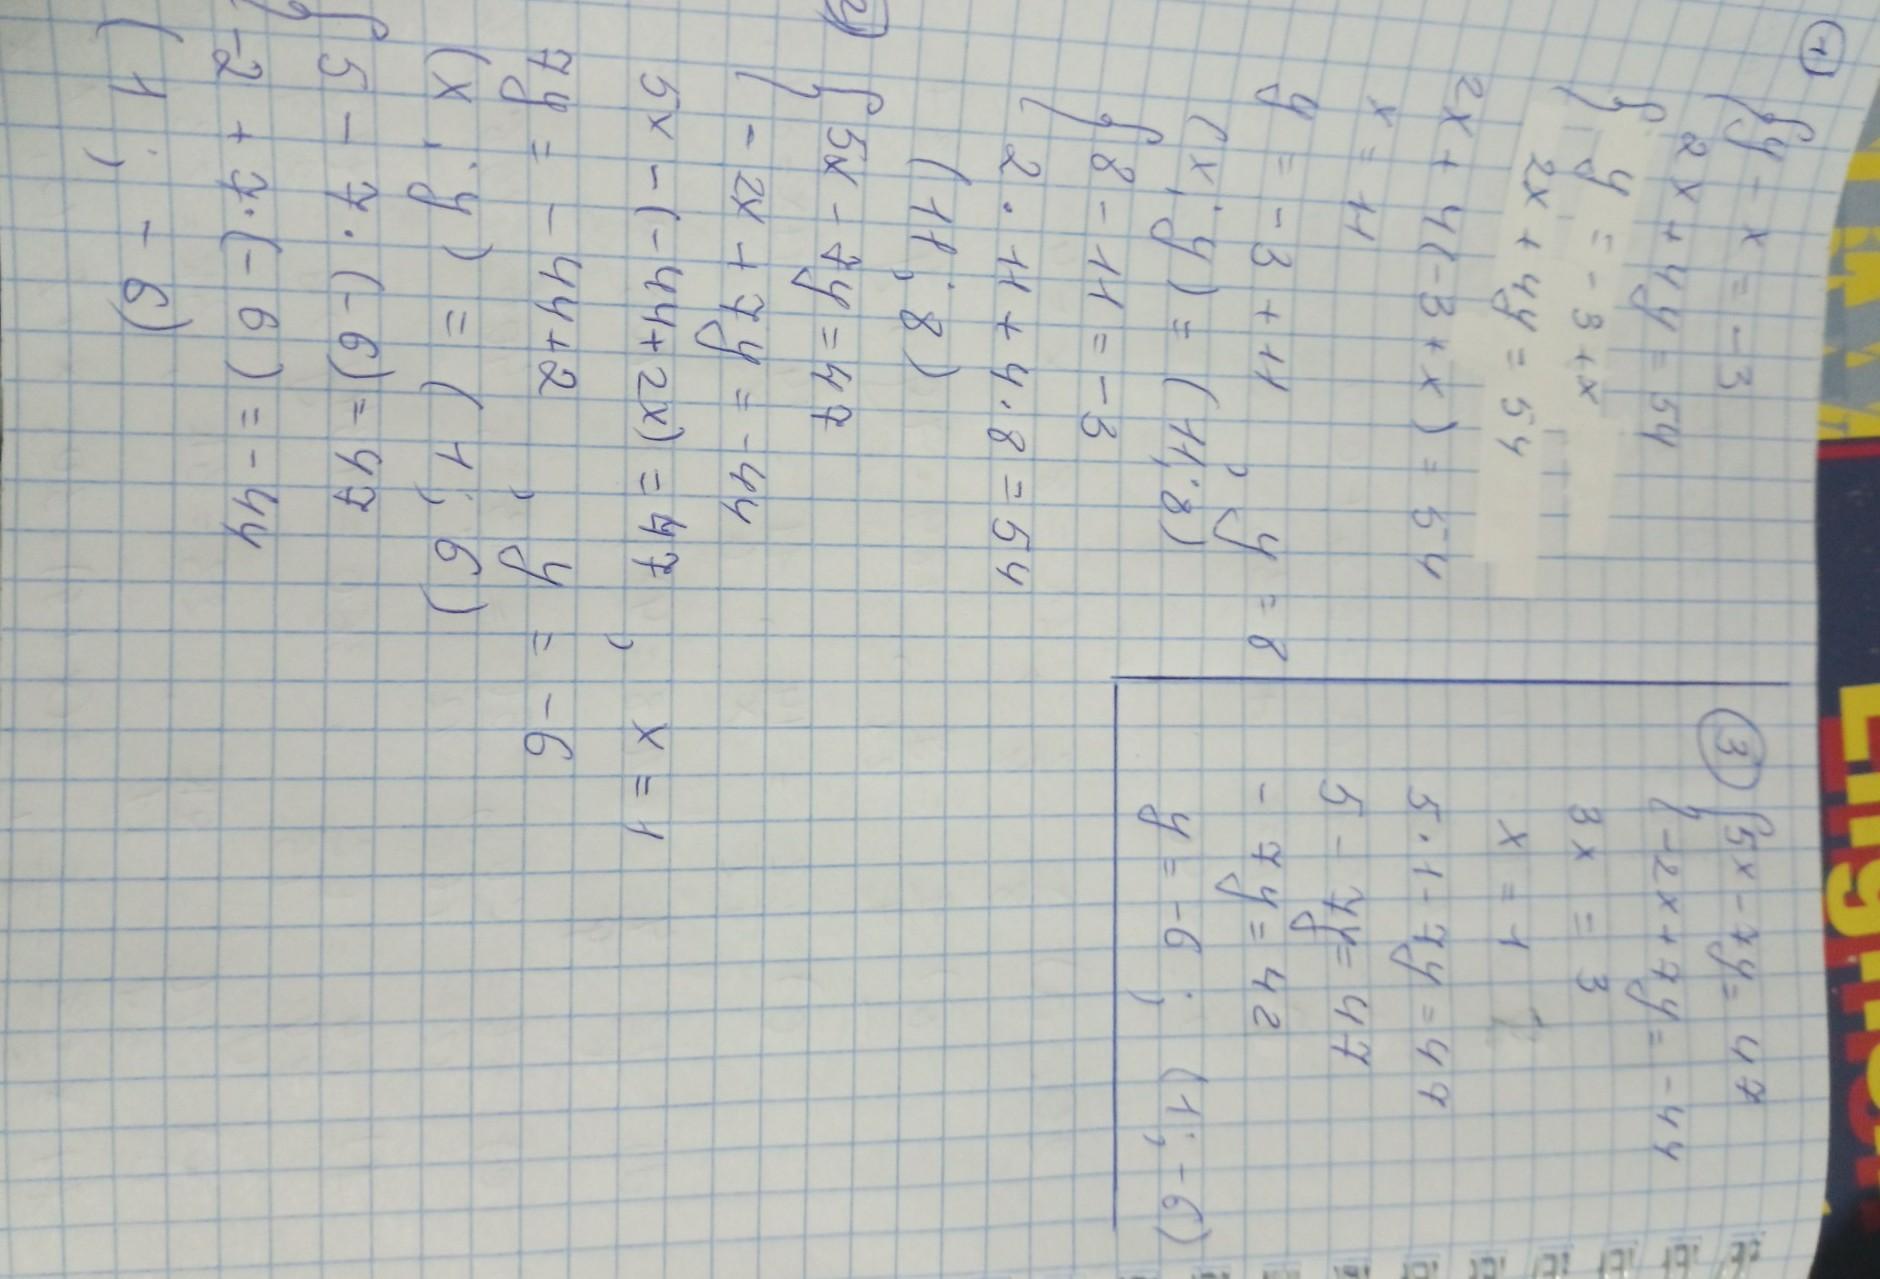 1
{ y - x = -3
2x + 4y = 54
{ y = -3 + x
2x + 4y = 54
2x + 4(-3 + x) = 54
x = 11
y = -3 + 11 , y = 8
(x ; y) = (11 ; 8)
{ 8 - 11 = -3
2 · 11 + 4 · 8 = 54
(11 ; 8)
2)
{ 5x - 7y = 47
-2x + 7y = -44
5x - (-44 + 2x) = 47 , x = 1
7y = -44 + 2 , y = -6
(x ; y) = (1 ; 6)
{ 5 - 7 · (-6) = 47
-2 + 7 · (-6) = -44
(1 ; -6)
3
{ 5x - 7y = 47
-2x + 7y = -44
3x = 3
x = 1
5 · 1 - 7y = 47
5 - 7y = 47
-7y = 42
y = -6 ; (1 ; -6)
English